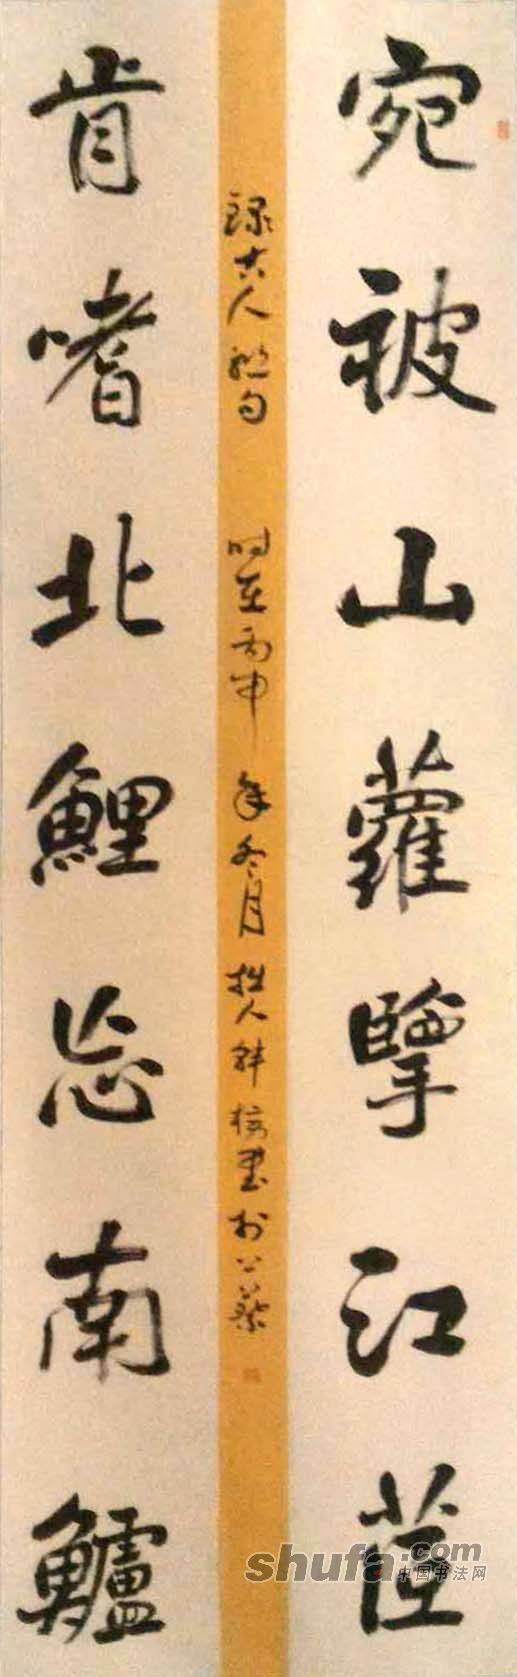 宛被山蘿擥江茝
錄古人聯句 时在丙申年冬月拙人書於
肯嗜北鯉忘南鱸
shufa.com
中国书法网